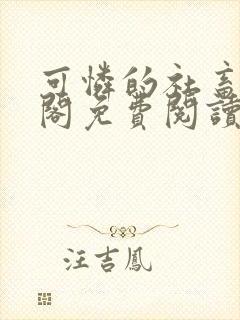 可憐的社畜
閣免費閱讀
汪吉鳳